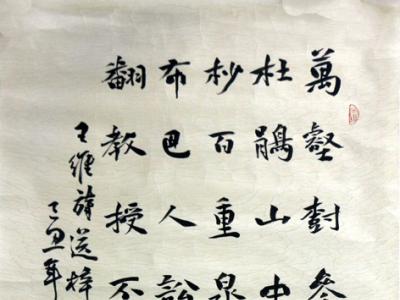 萬壑樹參
杜鵑山中
杪百重泉
布巴人訟
翻教授不
王維詩送梓
丑年